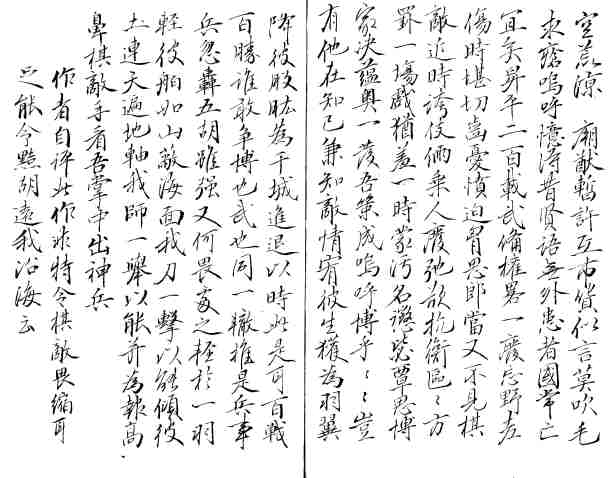 空荒涼 廟猷暫許互市貲似言莫吹毛
求疵嗚呼憶得昔賢語無外患者國常亡
冝矣昇平二百載武備權畧一廢忘野老
傷時堪切齒憂憤迫胃思郎當又不見棋
敵近時誇伎倆乗人廢弛欲抗衡區〻方
罫一場戯猶羞一時蒙汚名懲毖覃思博
家决蘊奥一發吾策成嗚呼博乎〻〻豈
有他在知己兼知敵情宥彼生獲為羽翼
降彼股肱為干城進退以時此是可百戦
百勝誰敢争博也武也同一轍推是兵事
兵忽轟五胡雖强又何畏處之輕於一羽
輕彼舶如山蔽海面我刀一撃以能傾彼
土連天遍地軸我師一擧以能并為報高
鼻棋敵手看吾掌中出神兵
作者自評此作非特令棋敵畏縮耳
足能令黠胡遠我沿海云